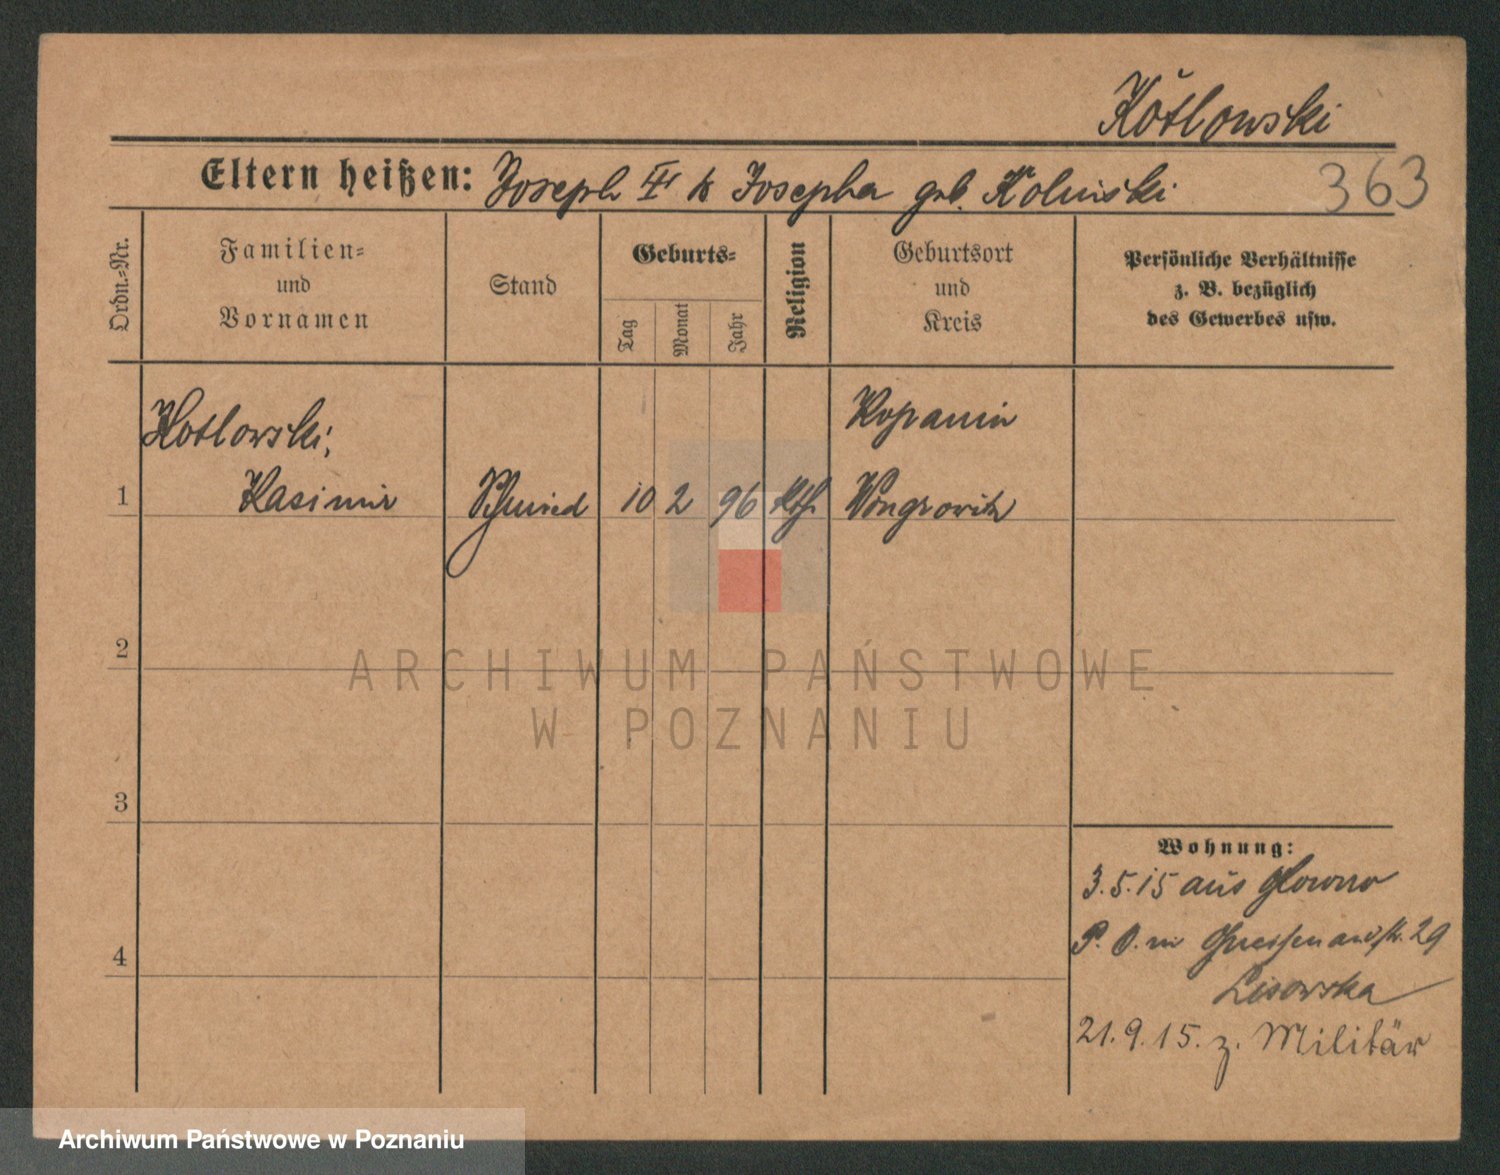 Kotlowski
Eltern heißen: Joseph II & Josepha geb. Kolinski
363
Ordn.-Nr.
Familien-
und
Vornamen
Stand
Geburts-
Tag
Monat
Jahr
Religion
Geburtsort
und
Kreis
Persönliche Verhältnisse
z. B. bezüglich
des Gewerbes usw.
Kotlowski,
Kopanin
1 Kasimir Schmied 10 2 96 kth. Wongrowitz
2
3
4
ARCHIWUM PAŃSTWOWE
W POZNANIU
Wohnung:
3.5.15 aus Glowno
P. O. m Gneisenaustr. 29
Lisowska
21.9.15. z. Militär
Archiwum Państwowe w Poznaniu